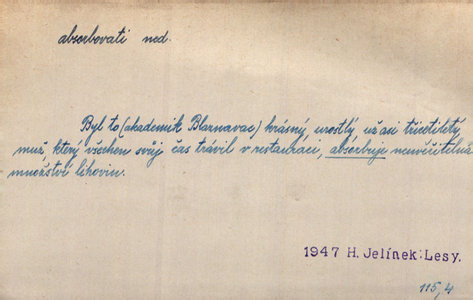 absorbovati ned.
Byl to (akademik Blaznavac) krásný, urostlý, už asi třicetiletý
muž, který všechen svůj čas trávil v restauraci, absorbuje neuvěřitelná
množství lihovin.
1947 H. Jelínek: Lesy.
115,4